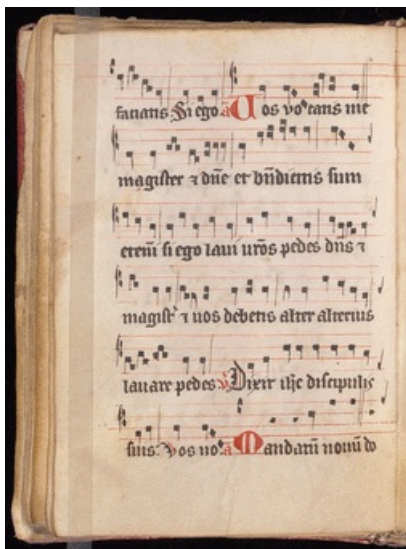 faciatis Si ego a Uos vocans me
magister ⁊ dñe et bñdictus sum
etem̄ si ego laui uros pedes dñs ⁊
magistˀ ⁊ uos debetis alter alterius
lauare pedes ℣ Dixit ihc discipulis
suis Vos uo a Mandatū nouū do